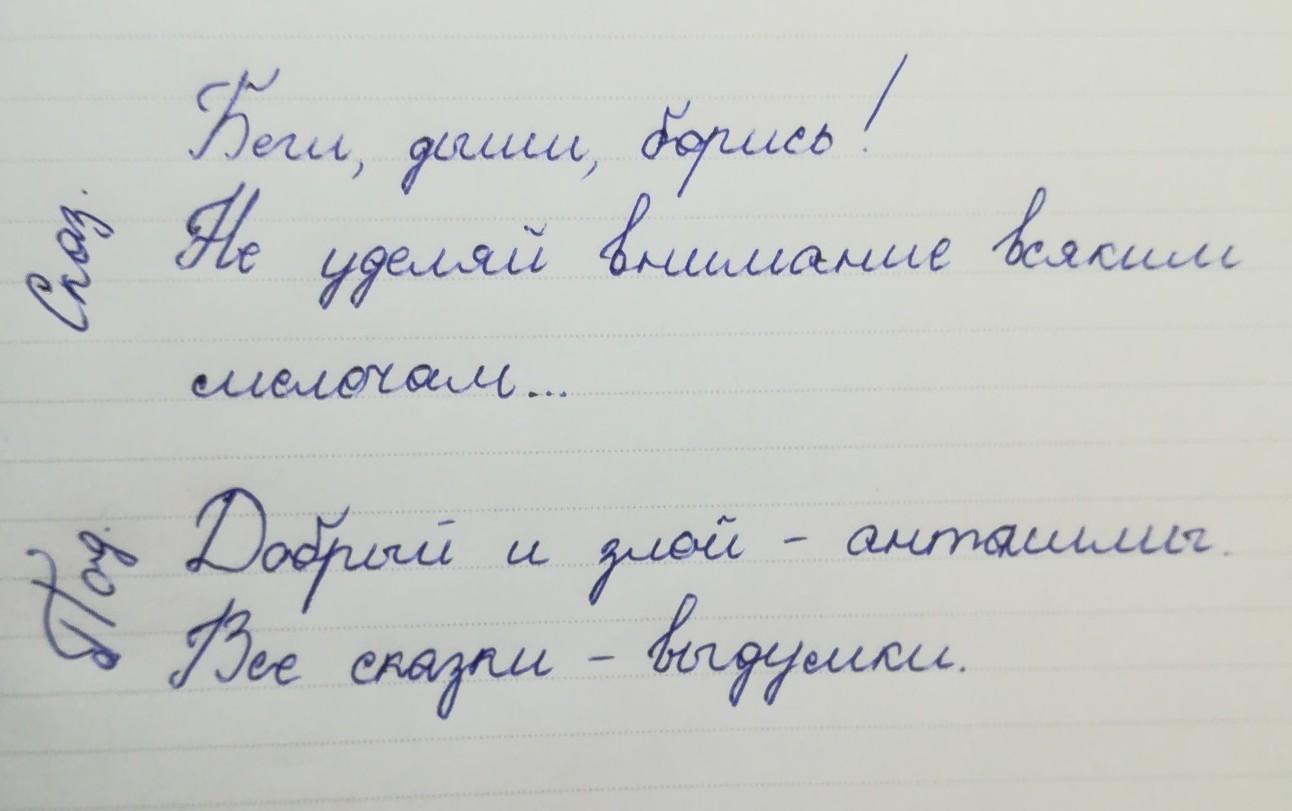 Сказ.
Беги, дыши, борись!
Не уделяй внимание всяким
мелочам...
Под.
Добрый и злой - антонимы.
Все сказки - выдумки.